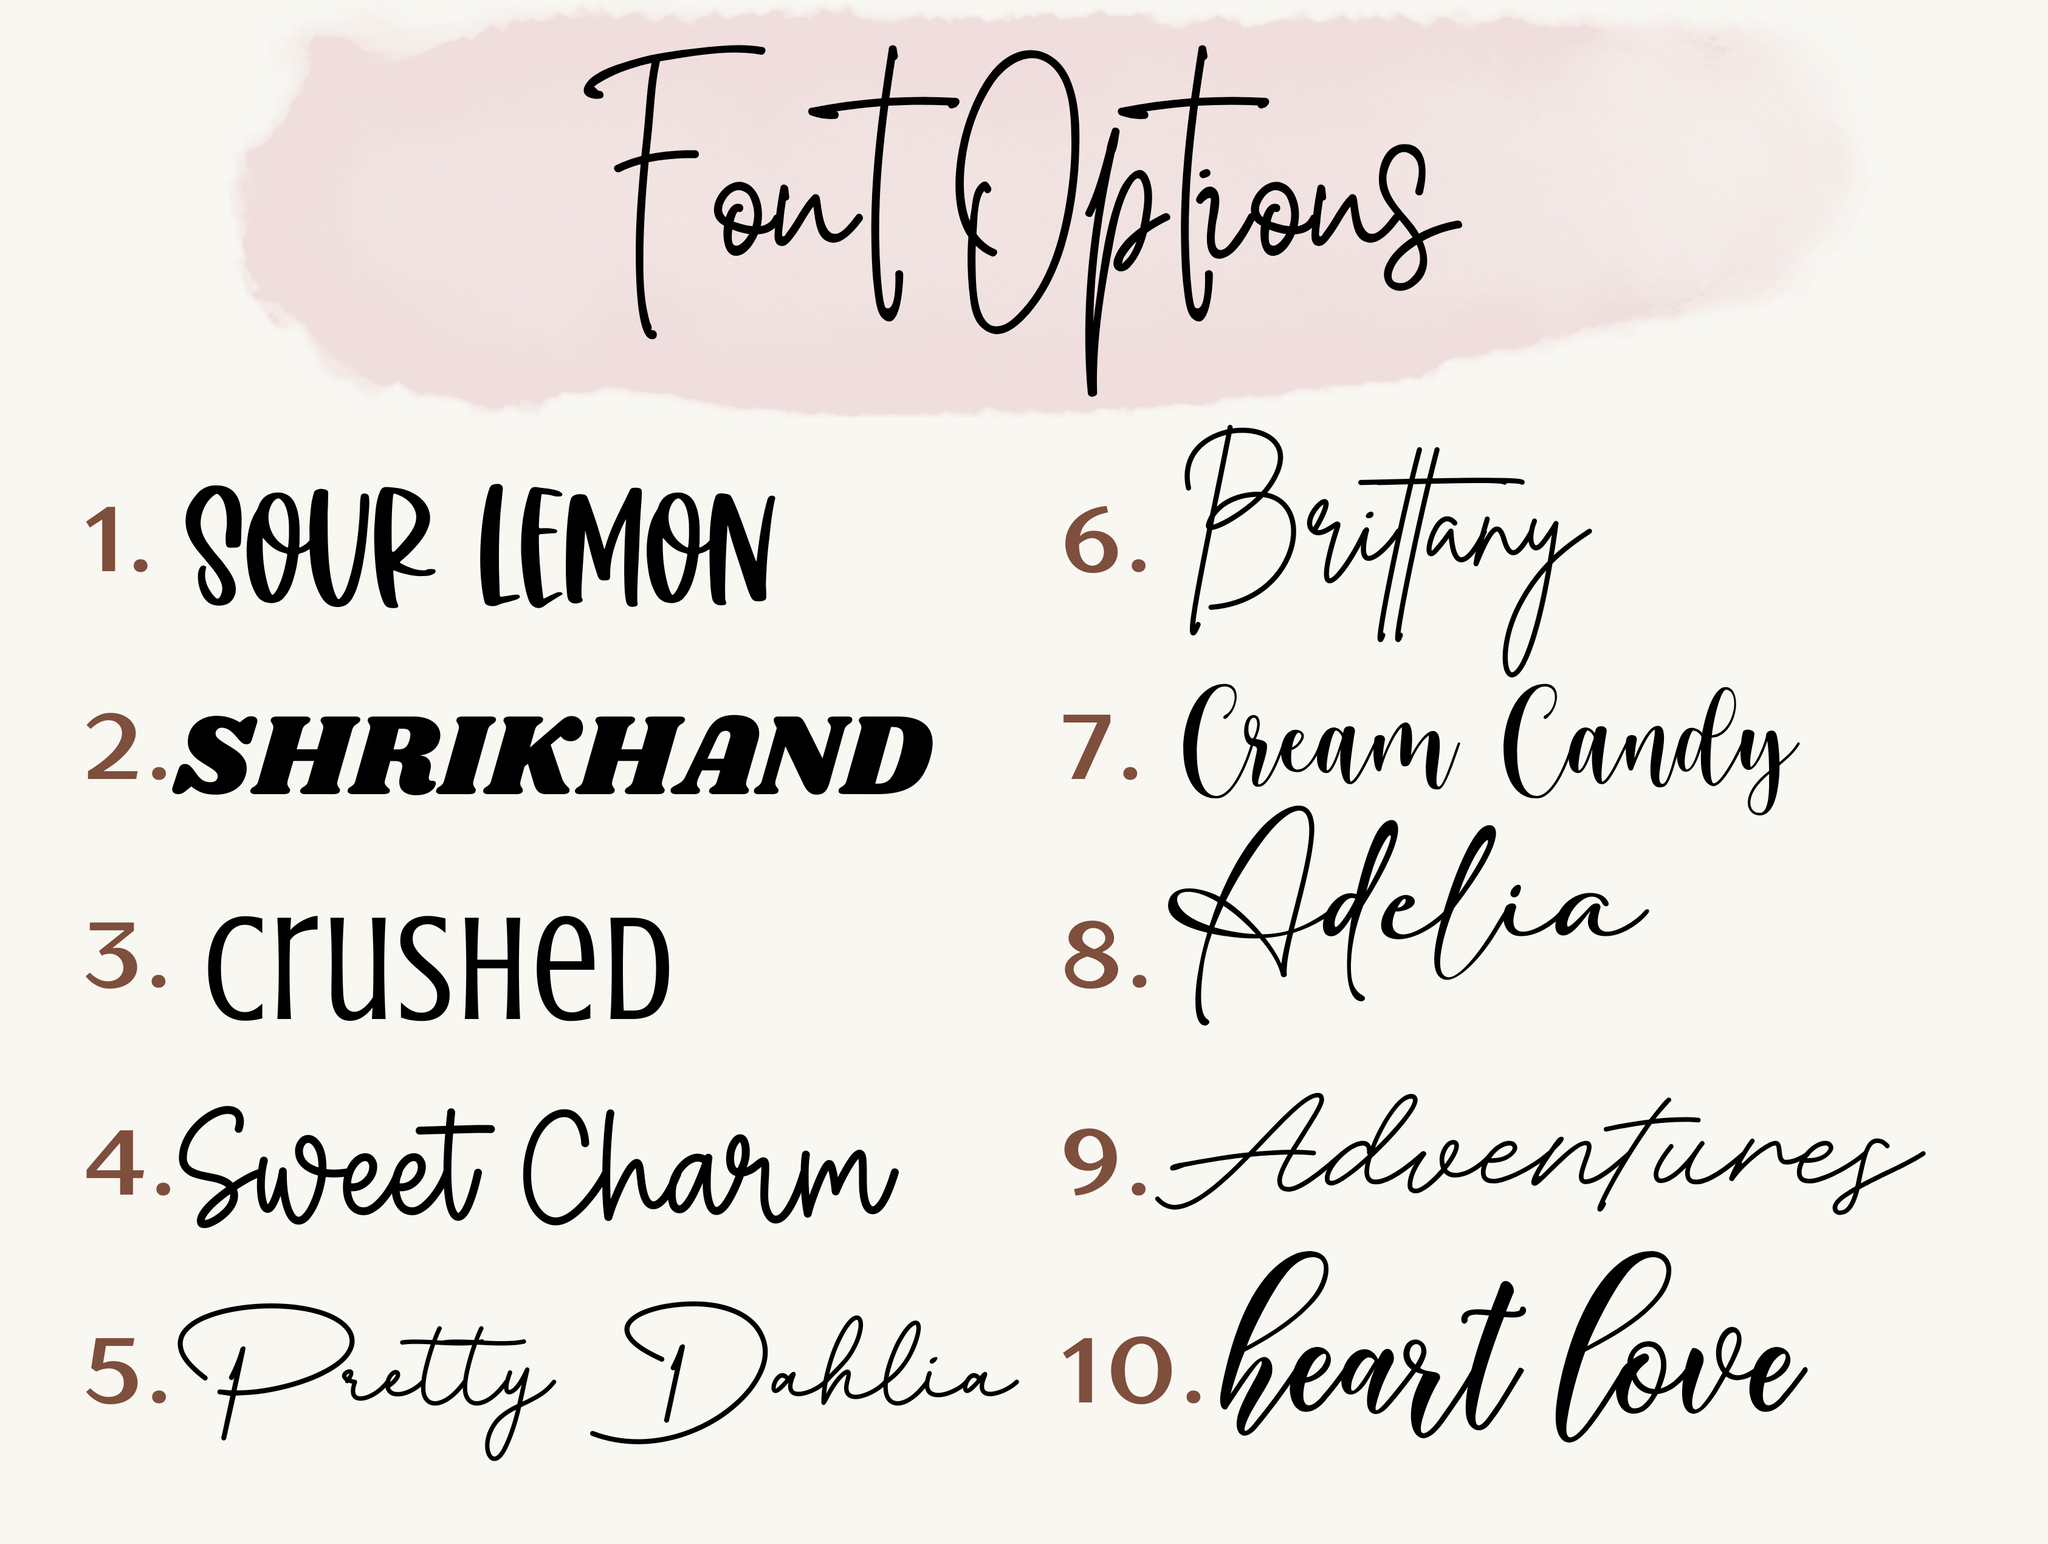 Font Options
1. SOUR LEMON
2. SHRIKHAND
3. crusHeD
4. Sweet Charm
5. Pretty Dahlia
6. Brittany
7. Cream Candy
8. Adelia
9. Adventures
10. heart love